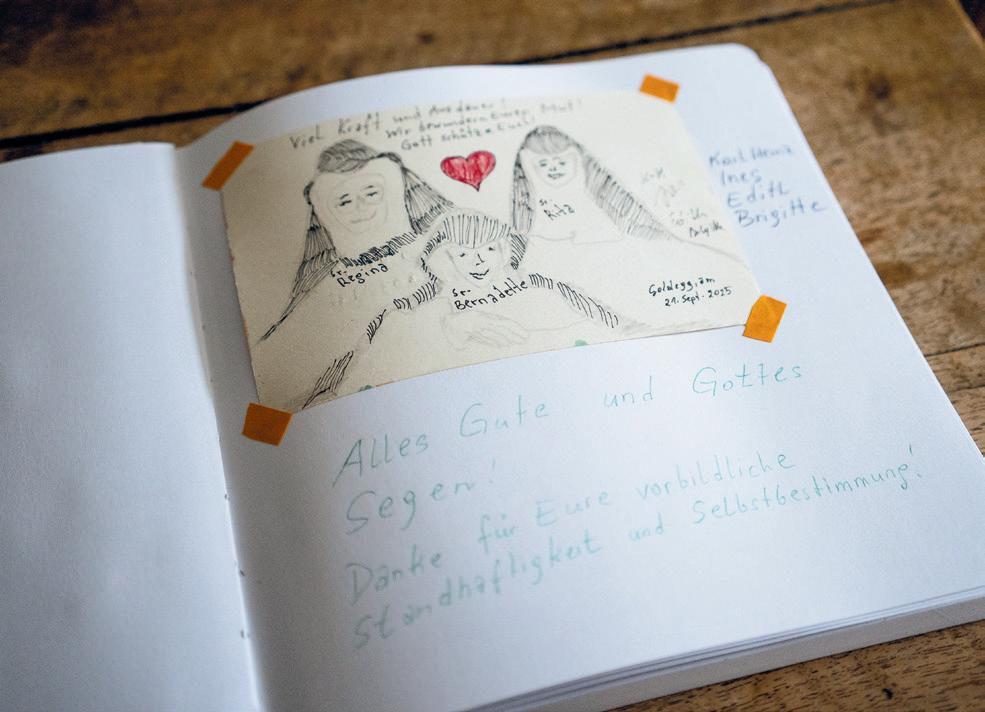 Viel Kraft und Ausdauer!
Wir bewundern Euren Mut!
Gott schütze Euch!
Sr.
Rita
Sr.
Regina
Sr.
Bernadette
Goldeggiam
21. Sept. 2025
Karl Heinz
Ines
Edith
Brigitte
Alles Gute und Gottes
Segen!
Danke für Eure vorbildliche
Standhaftigkeit und Selbstbestimmung!